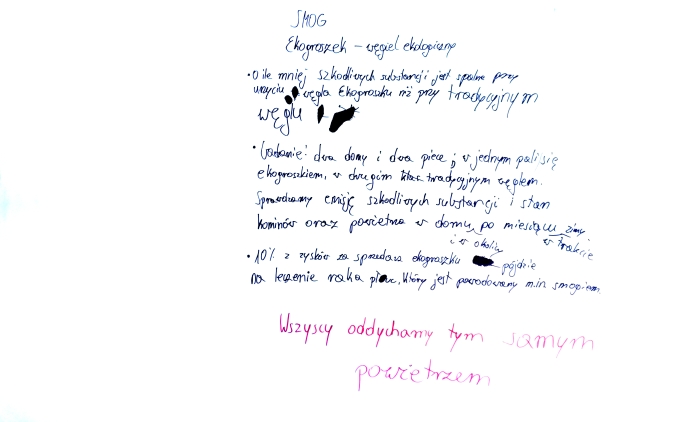 SMOG
Ekogroszek – węgiel ekologiczny
• O ile mniej szkodliwych substancji jest spalne przy
użyciu węgla Ekogroszku niż przy tradycyjnym
węglu
• Badanie: dwa domy i dwa piece; w jednym pali się
ekogroszkiem, w drugim tradycyjnym węglem.
Sprawdzamy emisję szkodliwych substancji i stan
kominów oraz powietrza w domu po miesiącu zimy
i w okolicy w trakcie
• 10% z zysków za sprzedaż ekogroszku pójdzie
na leczenie raka płuc, który jest powodowany m.in. smogiem
Wszyscy oddychamy tym samym
powietrzem